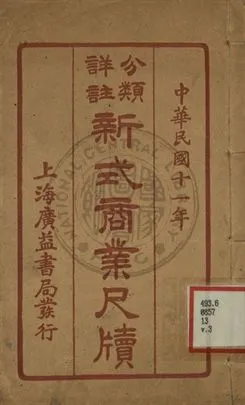 中華民國十一年
分類
詳註
新式商業尺牘
上海廣益書局發行
493.6
0857
13
v.3
NATIONAL CENTRAL